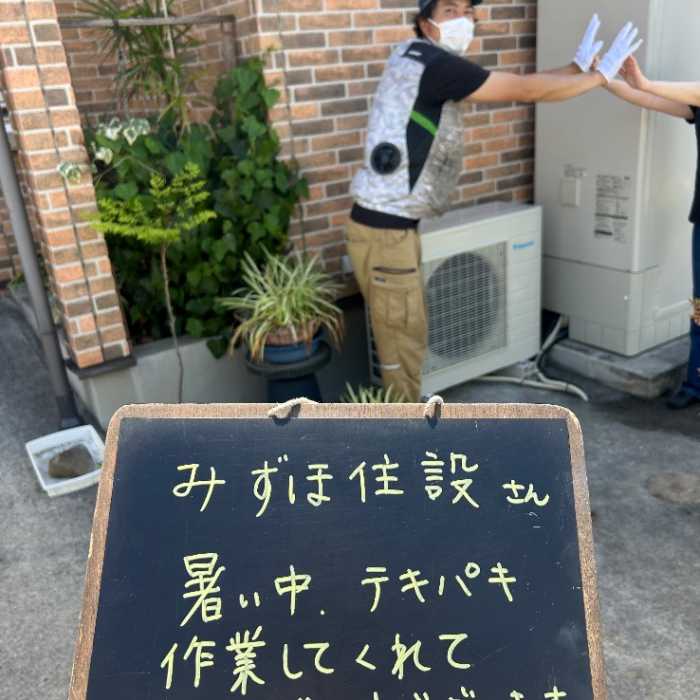 みずほ住設さん
暑い中、テキパキ
作業してくれて